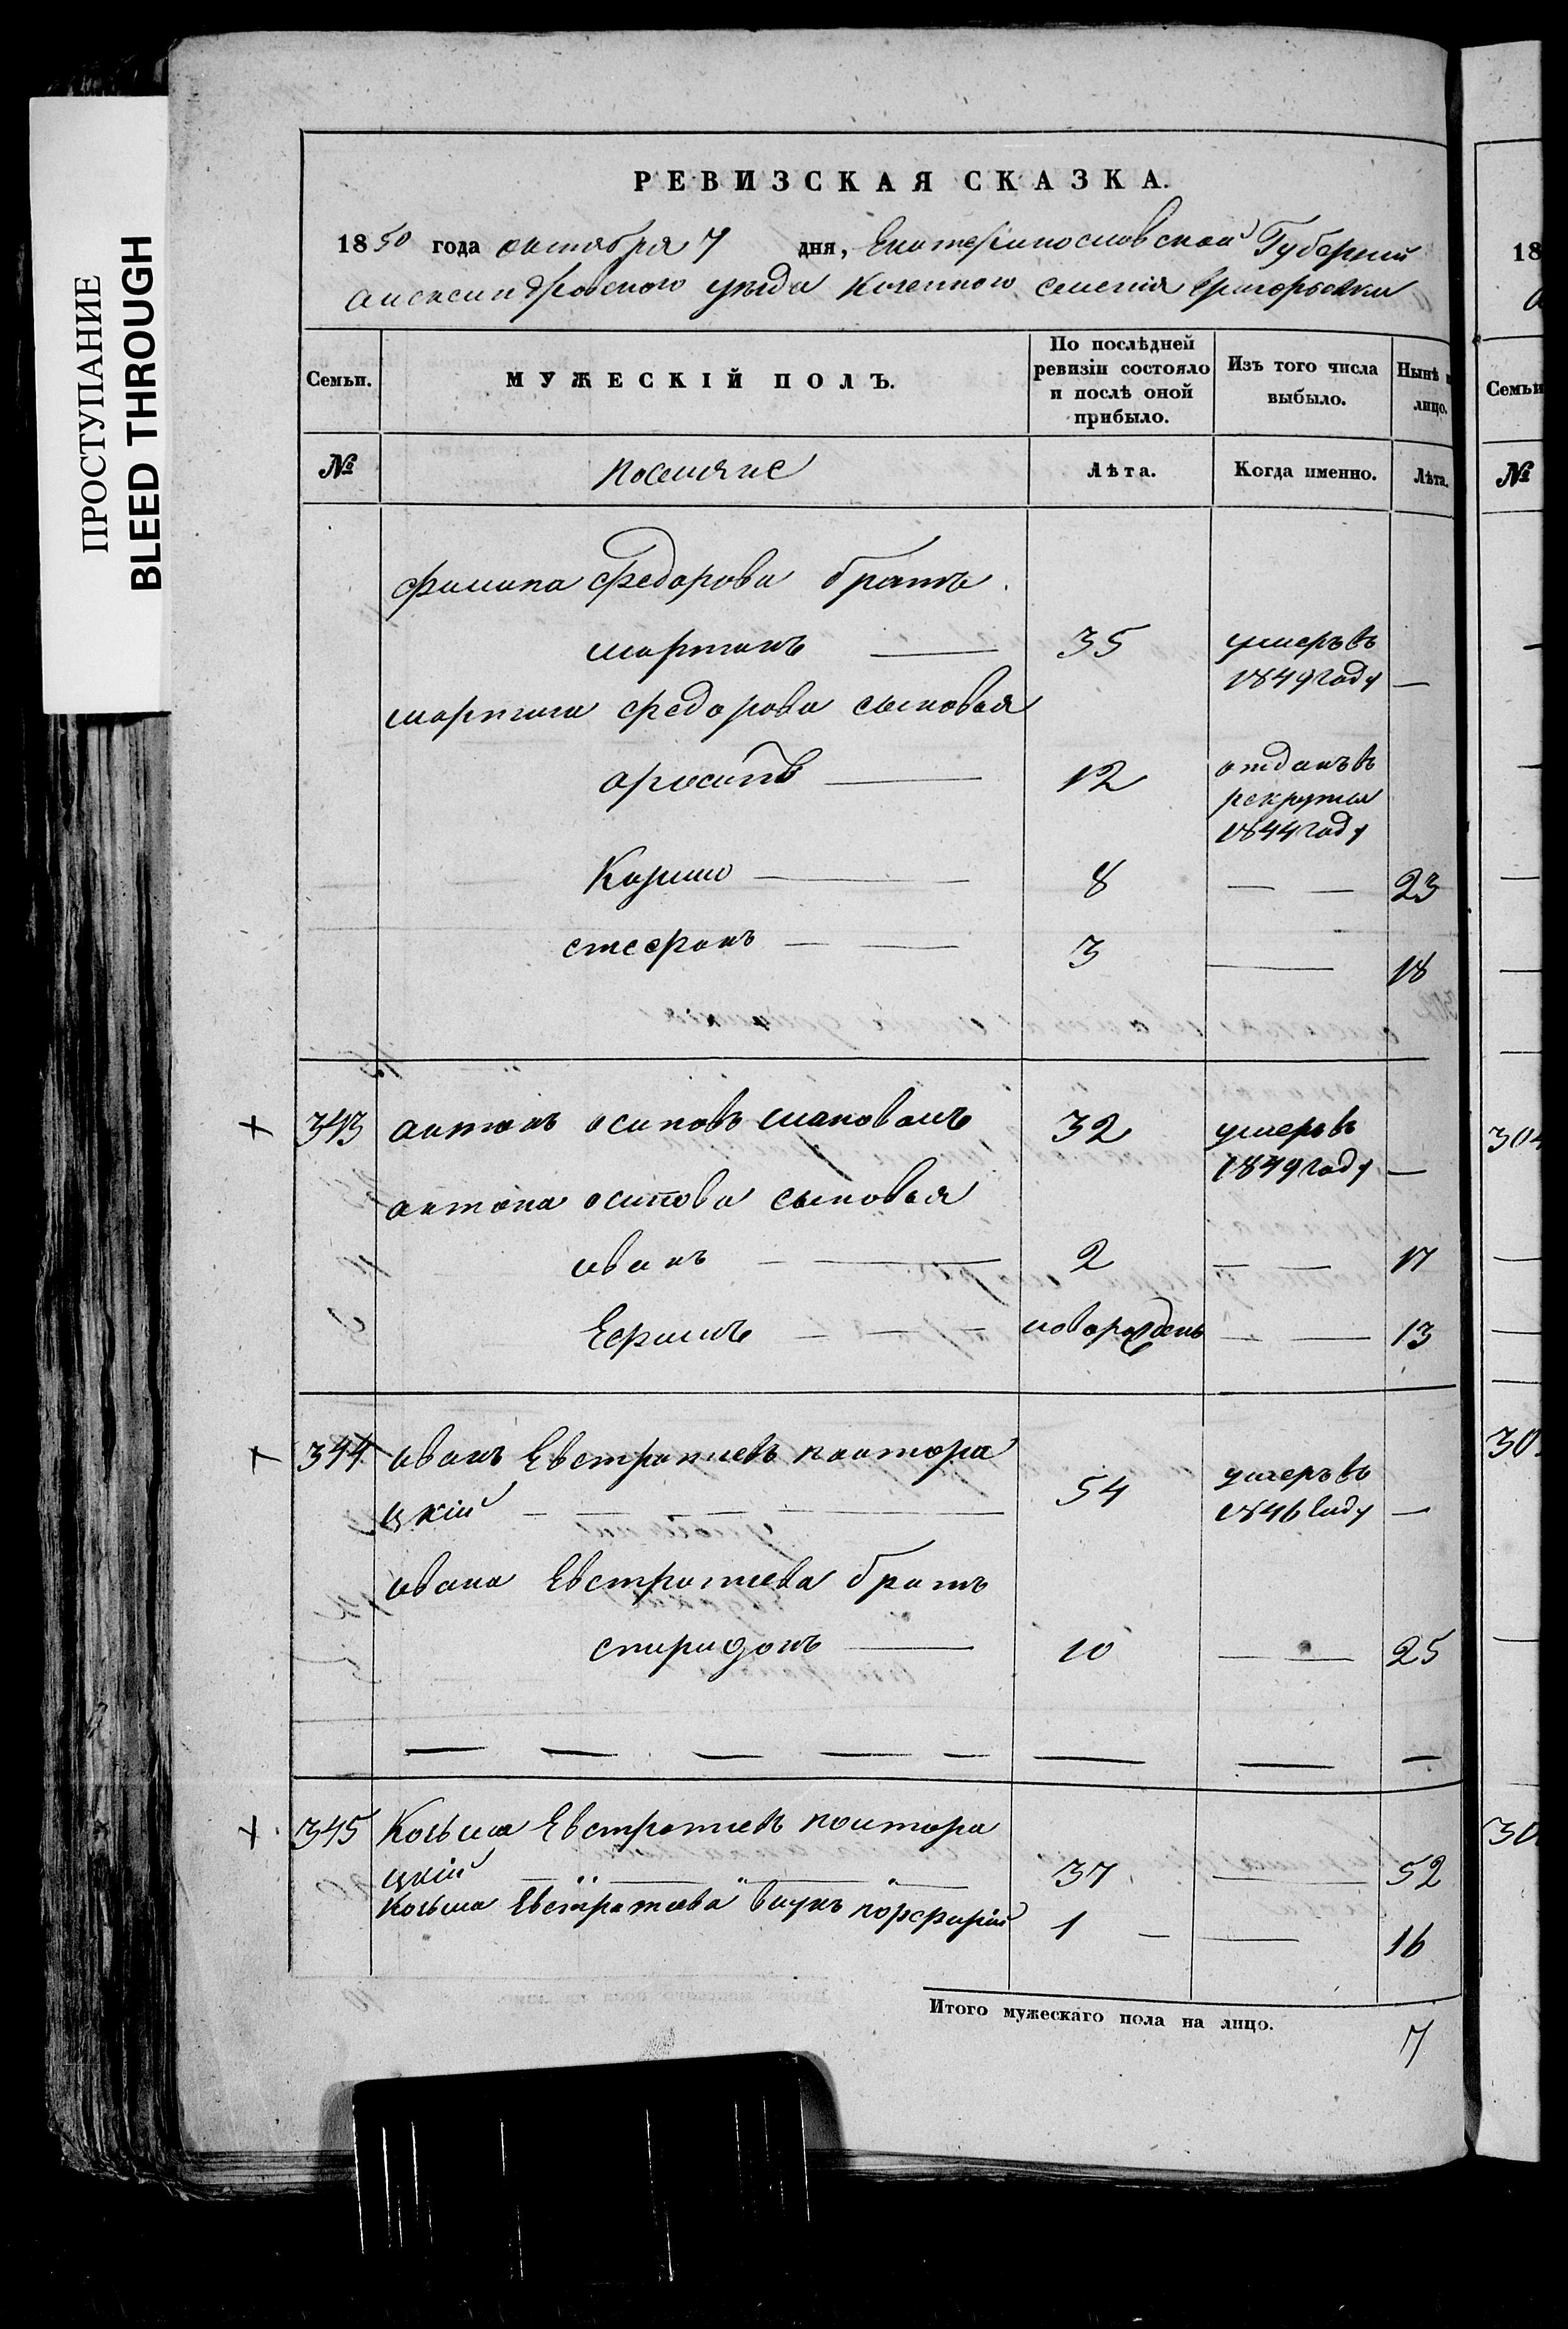 ПРОСТУПАНИЕ
BLEED THROUGH
РЕВИЗСКАЯ СКАЗКА.
1850 года октября 7 дня, Екатеринославской Губернии
александровского уезда Казенного селения Григорьевки
Семьи. МУЖЕСКІЙ ПОЛЪ. По послѣдней ревизіи состояло и послѣ оной прибыло. Изъ того числа выбыло. Нынѣ лицо.
№ поселяне Лѣта. Когда именно. Лѣта.
филипа Федорова братъ
мартинъ — 35 умеръ въ 1849 году —
мартина федорова сыновья
архипъ — 12 отданъ въ рекруты 1844 году
Кузьма — 8 — — 23
стефанъ — — 3 — 18
343 антонъ осиповъ шаповалъ 32 умеръ въ 1849 году —
антона осипова сыновья
иванъ — — 2 — — 17
Ефимъ — — — новорожденъ — — 13
344 иванъ Евстратиевъ полтора
цкій — — — — 54 умеръ въ 1846 году —
ивана Евстратиева братъ
спиридонъ — 10 — 25
— — — — — — — —
345 Козьма Евстратиевъ полтора
цкій — — — 37 — 52
Козьма Евстратиева внукъ порфирій 1 — — 16
Итого мужескаго пола на лицо. 7
18
Семьи
№
304
30
30